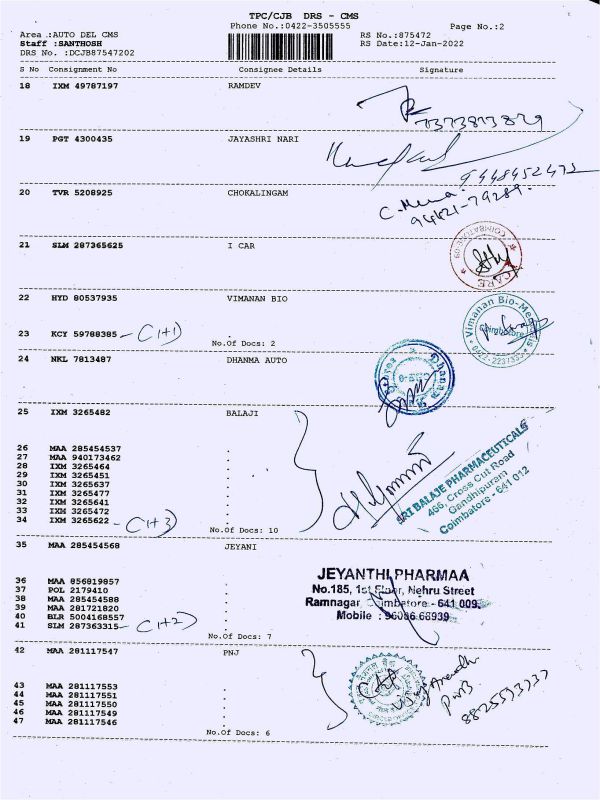 TPC/CJB DRS - CMS
Phone No.:0422-3505555
Page No.:2
Area :AUTO DEL CMS
RS No.:875472
Staff :SANTHOSH
RS Date:12-Jan-2022
DRS No. :DCJB87547202
S No Consignment No Consignee Details Signature
18 IXM 49787197 RAMDEV
7373873829
19 PGT 4300435 JAYASHRI NARI
9448452472
20 TVR 5208925 CHOKALINGAM
94821-79289.
21 SLM 287365625 I CAR
22 HYD 80537935 VIMANAN BIO
Vimanan Bio-Med
Coimbatore
23 KCY 59788385 - (1+1) .
No.Of Docs: 2
24 NKL 7813487 DHANMA AUTO
Dhanma
25 IXM 3265482 BALAJI
26 MAA 285454537 .
27 MAA 940173462 .
28 IXM 3265464 .
29 IXM 3265451 .
30 IXM 3265637 .
31 IXM 3265477 .
32 IXM 3265641 .
33 IXM 3265472 .
34 IXM 3265622 - (1+3) .
No.Of Docs: 10
SRI BALAJE PHARMACEUTICALS
466, Cross Cut Road
Gandhipuram
Coimbatore - 641 012
35 MAA 285454568 JEYANI
JEYANTHI PHARMAA
No.185, 1st Floor, Nehru Street
Ramnagar, Coimbatore - 641 009.
Mobile : 96086 68939
36 MAA 856819857 .
37 POL 2179410 .
38 MAA 285454588 .
39 MAA 281721820 .
40 BLR 5004168557 .
41 SLM 287363315 - (1+2) .
No.Of Docs: 7
42 MAA 281117547 PNJ
43 MAA 281117553 .
44 MAA 281117551 .
45 MAA 281117550 .
46 MAA 281117549 .
47 MAA 281117546 .
No.Of Docs: 6
8825593737